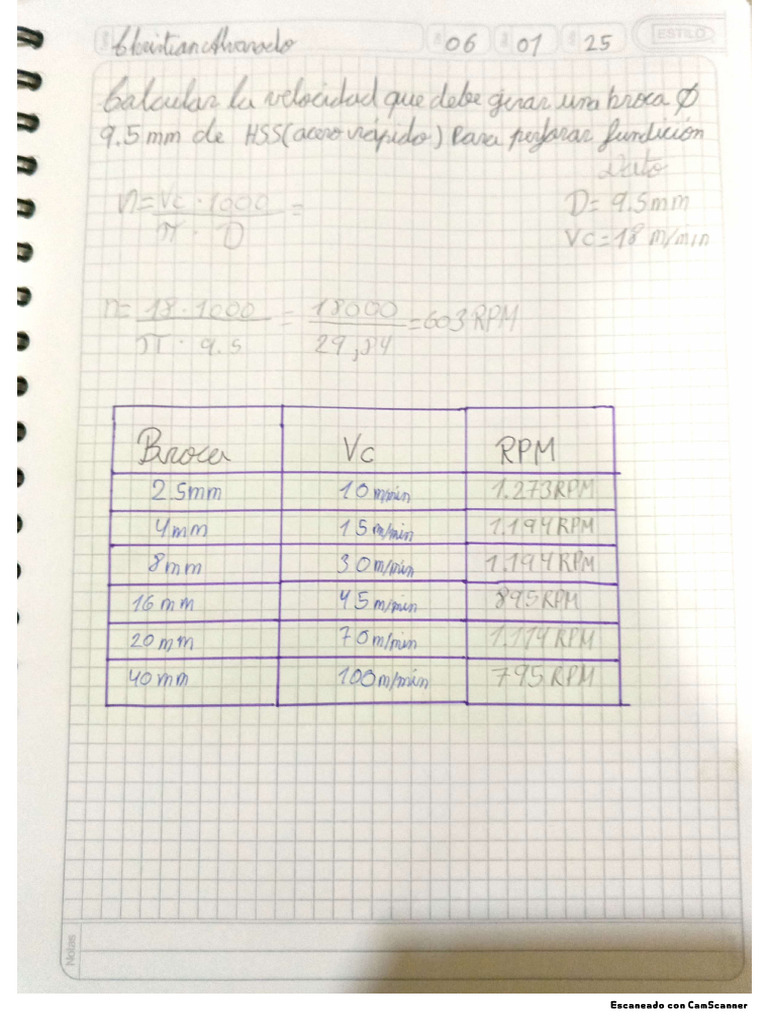 Christian Alvarado 06 01 25
ESTILO
Calcular la velocidad que debe girar una broca Ø
9.5mm de HSS(acero rápido) Para perforar fundición
Dato
n=Vc·1000/π·D=
D= 9.5mm
Vc=18 m/min
n=18·1000/π·9.5=18000/29,84=603RPM
Broca Vc RPM
2.5mm 10m/min 1.273RPM
4mm 15m/min 1.194RPM
8mm 30m/min 1.194RPM
16mm 45m/min 895RPM
20mm 70m/min 1.114RPM
40mm 100m/min 795RPM
Notas
Escaneado con CamScanner